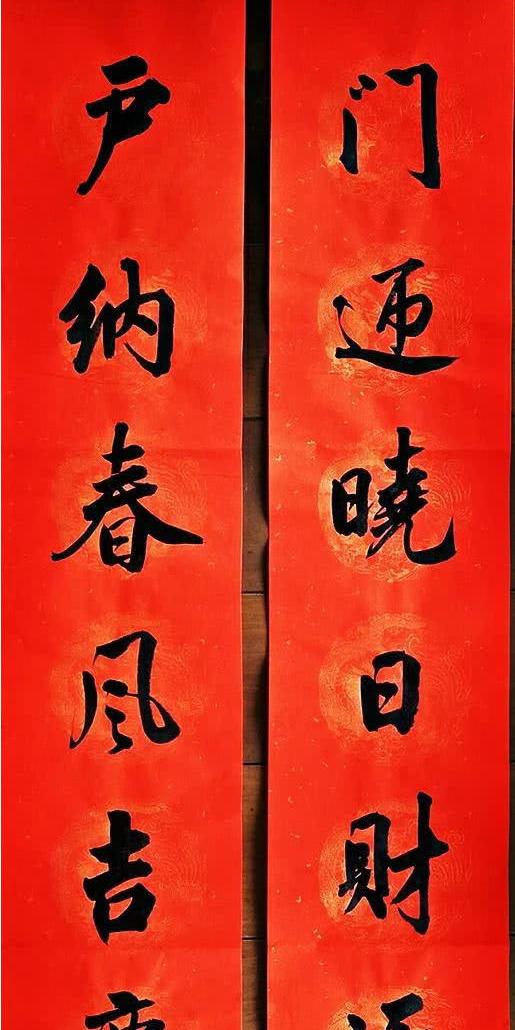 门迊曉日财
户纳春风吉